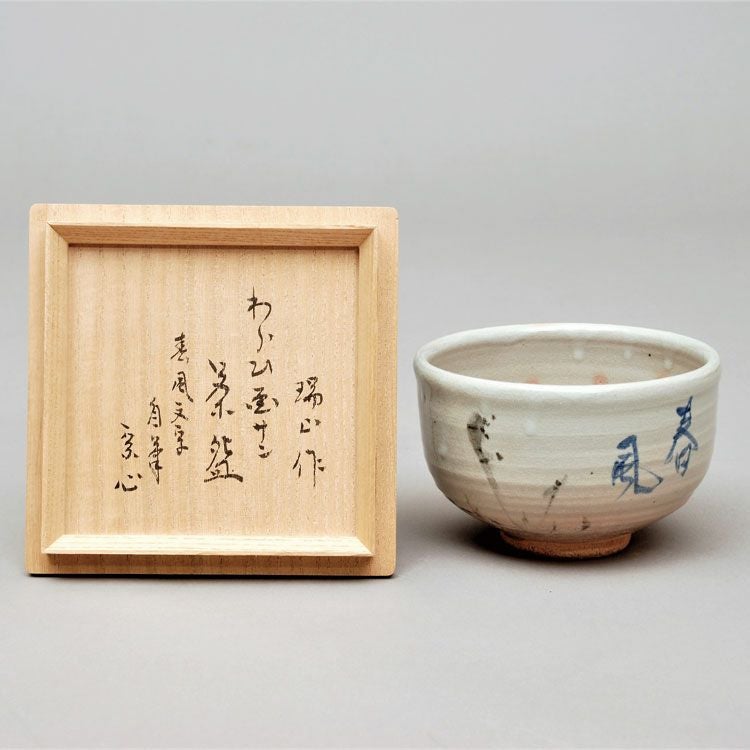 瑞山作
わらひ画サン
茶盌
春風文字
自筆
宗心
春
風